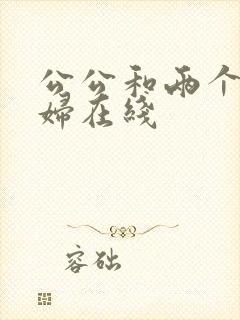 公公和两个
婦在线
容础